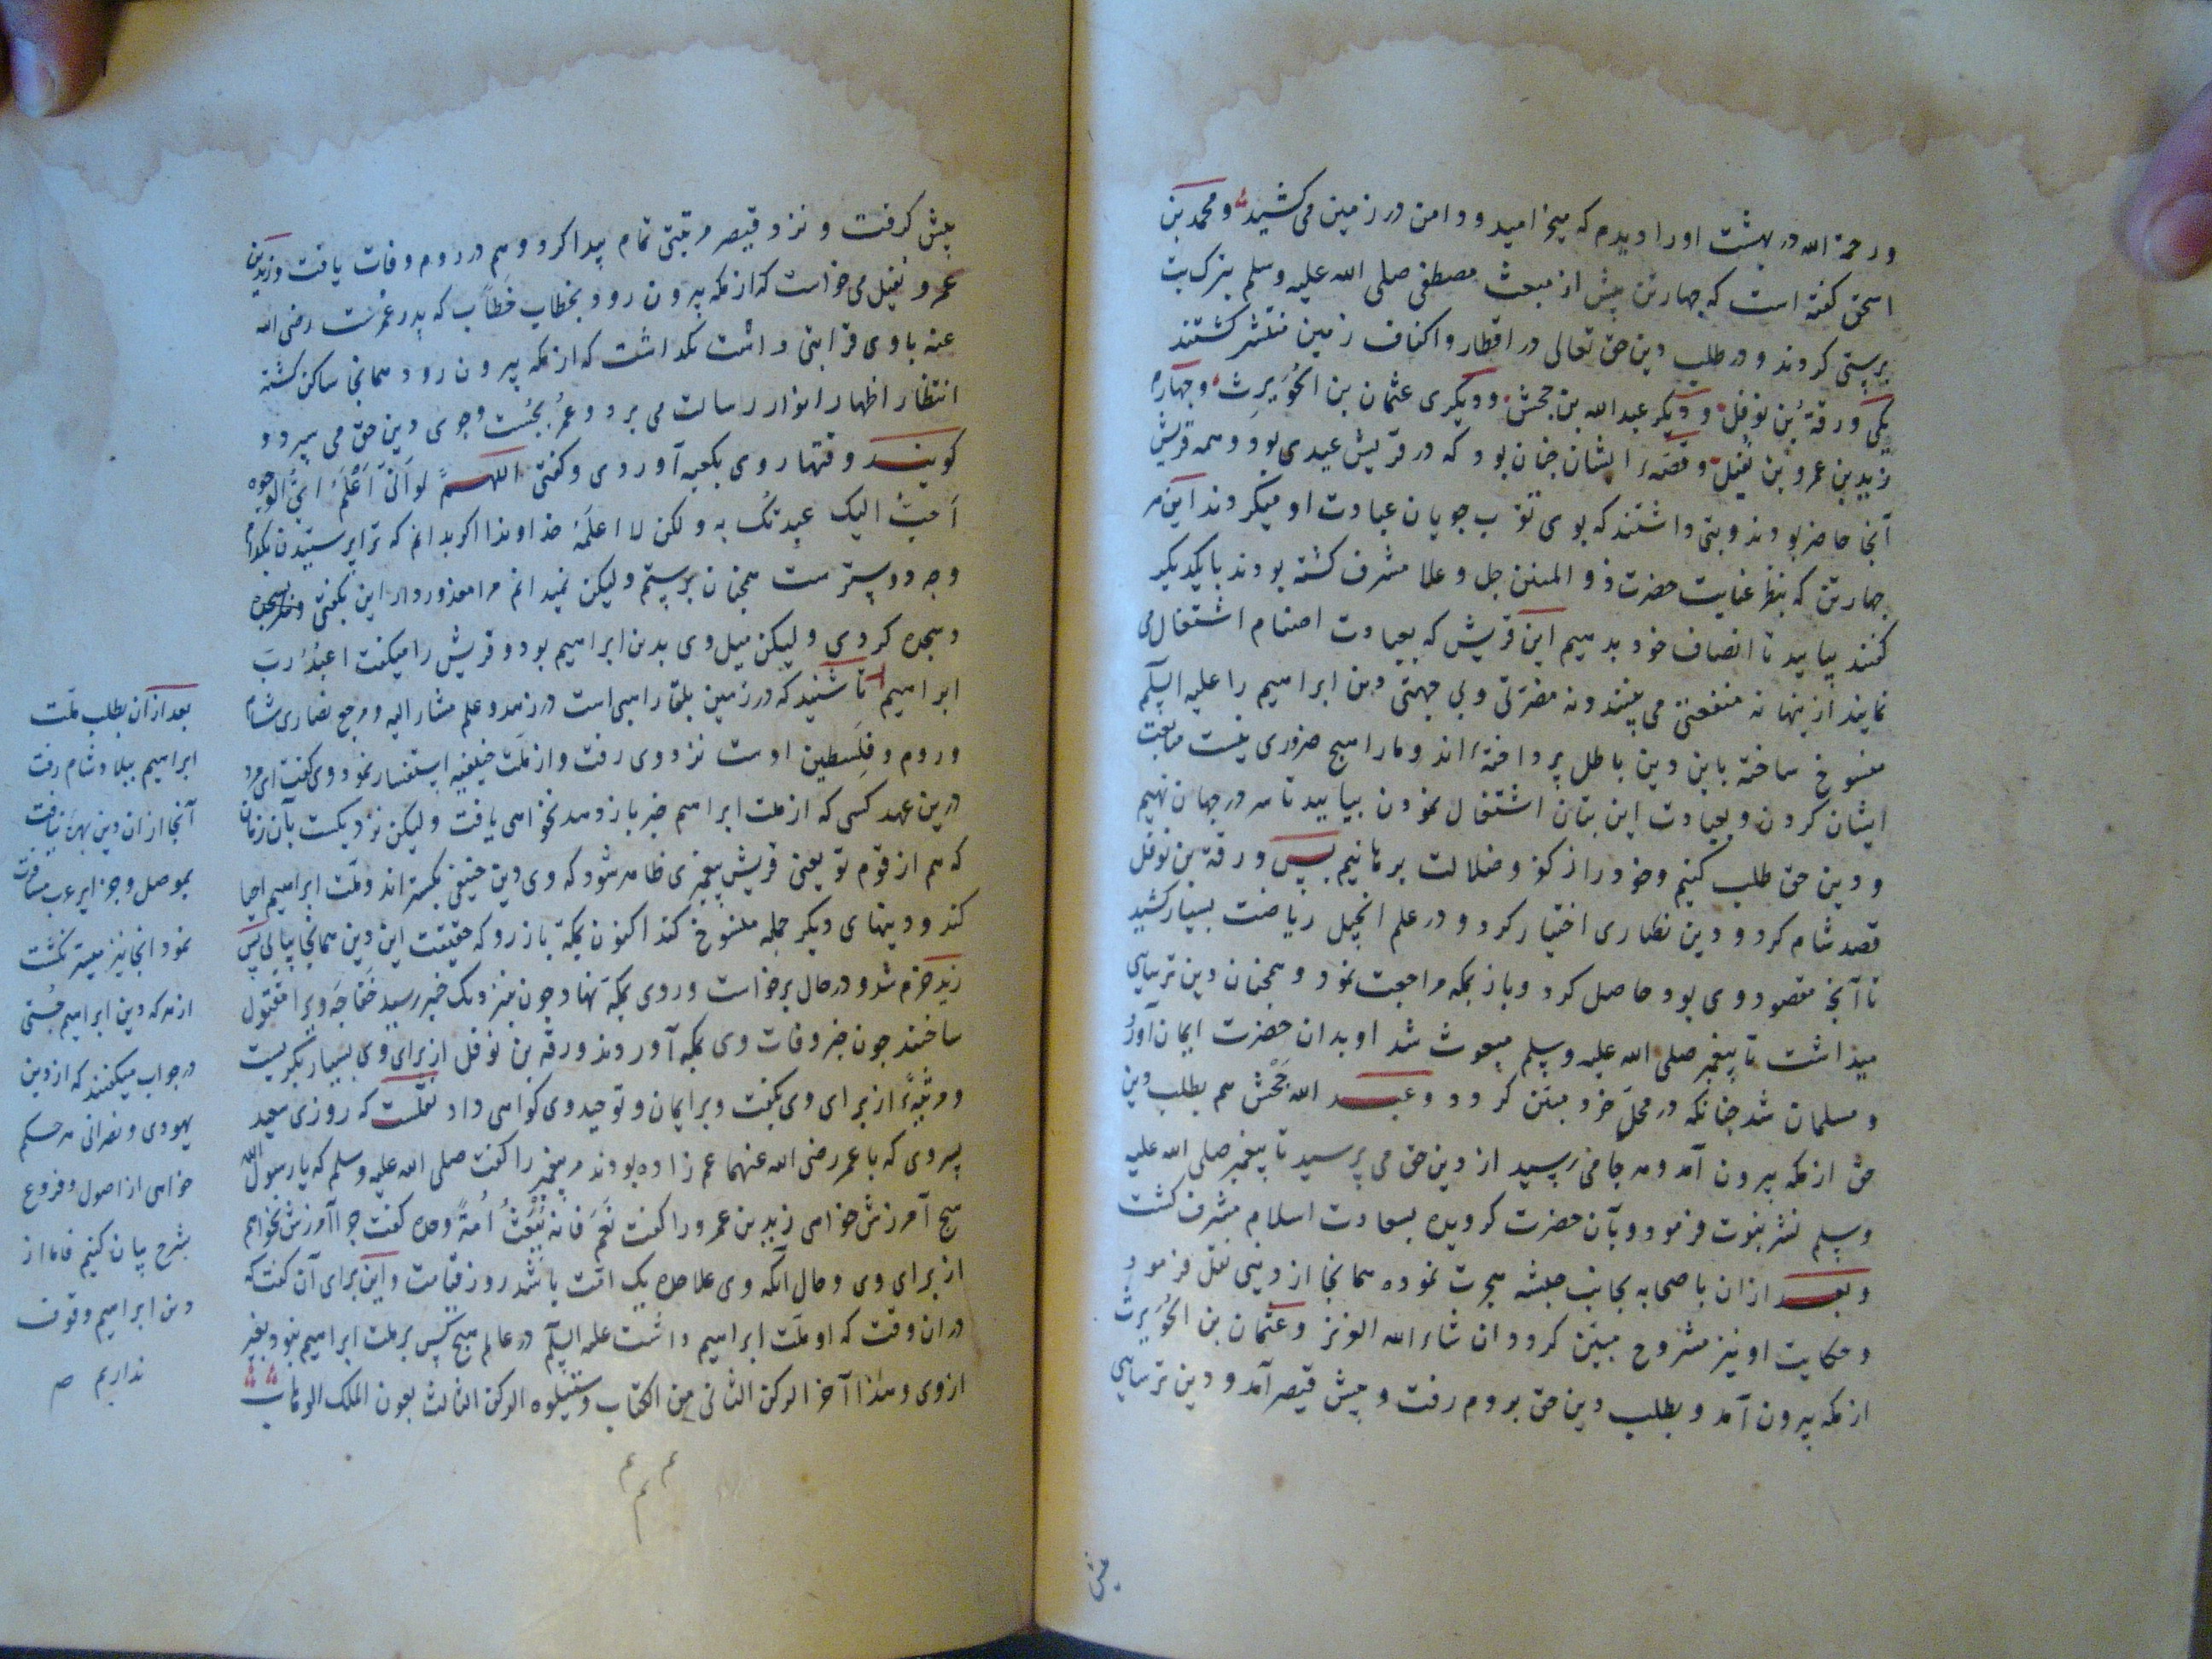 ورحمة الله در بهشت اورا دیدم که میخرامید و دامن در زمین می کشید و محمد بن
اسحق کفته است که جهارتن پیش از مبعث مصطفی صلی الله علیه وسلم بترک بت
پرستی کردند و در طلب دین حق تعالی در اقطار و اکناف زمین منتشر کشتند
یکی ورقة بن نوفل و دیکر عبد الله بن جحش و دیکری عثمان بن الحُوَیرِث و جهارم
زید بن عمرو بن نُفَیل و قصّهٔ ایشان جنان بود که در قریش عیدی بود و همه قریش
آنجا حاضر بودند و بتی داشتند که بوی تقرب جویان عبادت او میکردند این هر
جهارتن که بنظر عنایت حضرت ذو المنن جل و علا مشرف کشته بودند با یکدیکر
کفتند بیایید تا انصاف خود بدهیم این قریش که بعبادت اصنام اشتغال می
نمایند از ینها نه منفعتی می بینند و نه مضرتی و بی جهتی دین ابراهیم را علیه السلم
منسوخ ساخته باین دین باطل پرداخته‌اند و مارا هیج ضروری نیست متابعت
ایشان کردن و بعبادت این بتان اشتغال نمودن بیایید تا سر در جهان نهیم
و دین حق طلب کنیم و خود را از کفر و ضلالت برهانیم پس ورقة بن نوفل
قصد شام کرد و دین نصاری اختیار کرد و در علم انجیل ریاضت بسیار کشید
تا آنج مقصود وی بود حاصل کرد و باز بمکه مراجعت نمود و همجنان دین ترسایی
میداشت تا پیغمبر صلی الله علیه وسلم مبعوث شد او بدان حضرت ایمان آورد
و مسلمان شد جنانکه در محل خود مبیّن کردد و عبد الله جَحْش هم بطلب دین
حق از مکه بیرون آمد و هر جا می رسید از دین حق می پرسید تا پیغمبر صلی الله علیه
وسلم نشر نبوت فرمود و بآن حضرت کرویده بسعادت اسلام مشرف کشت
و بعد ازان با صحابه بجانب حبشه هجرت نموده همانجا از دینی نقل فرمود
و حکایت او نیز مشروح مبیّن کردد ان شاء الله العزیز و عثمان بن الحُوَیرِث
از مکه بیرون آمد و بطلب دین حق بروم رفت و پیش قیصر آمد و دین ترسایی
پیش
پیش کرفت و نزد قیصر مرتبتی تمام پیدا کرد و هم در روم وفات یافت و زید بن
عمرو نفیل می خواست که از مکه بیرون رود بخطاب خطّاب که پدر عُمَرست رضی الله
عنه با وی قرابتی داشت نکذاشت که از مکه بیرون رود همانجا ساکن کشته
انتظار اظهار انوار رسالت می برد و عمر بجُست و جوی دین حق می سپرد و
کویند وقتها روی بکعبه آوردی و کفتی اللهم لو اَنّی اَعْلَمُ ایُّ الوجوه
اَحبُّ الیک عبدتُک به و لکن لا اعلَمُ خداوندا اکر بدانم که ترا پرستیدن بکدام
وجه دوسترست همجنان پرستم و لیکن نمیدانم مرا معذور دار این بکفتی
و سجده کردی و لیکن میل وی بدین ابراهیم بود و قریش را میکفت اعبُدُ ربَّ
ابراهیم تا شنید که در زمین بلقا راهبی است در زهد و علم مشار الیه و مرجع نصاری شام
و روم و فِلَسطین اوست نزد وی رفت و از ملّت حنیفیه استفسار نمود وی کفت ای مرد
درین عهد کسی که از ملت ابراهیم خبر باز دهد نخواهی یافت و لیکن نزدیکست بآن زمان
که هم از قوم تو یعنی قریش پیغمبری ظاهر شود که وی دین حنیفی بکستراند و ملّت ابراهیم احیا
کند و دینهای دیکر جمله منسوخ کند اکنون بمکه باز رو که حقیقت این دین همانجا بیابی پس
زید خرم شد و در حال برخواست و روی بمکه نهاد جون بنزدیک خیبر رسید خَفاجَه ویرا مقتول
ساختند جون خبر وفات وی بمکه آوردند ورقه بن نوفل از برای وی بسیار بکریست
و مرثیهٔ از برای وی بکفت و بر ایمان و توحید وی کواهی داد نقلست که روزی سعید
پسر وی که با عمر رضی الله عنهما عم زاده بودند مر پیغمبر را کفت صلی الله علیه وسلم که یا رسول الله
هیج آمرزش خواهی زید بن عمرو را کفت نَعَم فانه یُبْعَثُ اُمةً وحده کفت جرا آمرزش نخواهم
از برای وی و حال آنکه وی علاحده یک امّت باشد روز قیامت و این برای آن کفت که
دران وقت که او ملّت ابراهیم داشت علیه السلم در عالم هیج کس بر ملت ابراهیم نبود بغیر
از وی و هذا آخر الرکن الثانی من الکتاب و سَیَتلوه الرکن الثالث بعون الملک الوهاب
م م م
بعد ازان بطلب ملّت
ابراهیم ببلاد شام رفت
آنجا ازان دین بهره نیافت
بموصل و جزایر عرب مسافرت
نمود انجا نیز میسّر نکشت
از هر که دین ابراهیم جُستی
در جواب میکفتند که از دین
یهودی و نصرانی هر حکم
خواهی از اصول و فروع
بشرح بیان کنیم فاما از
دین ابراهیم وقوف
نداریم صح